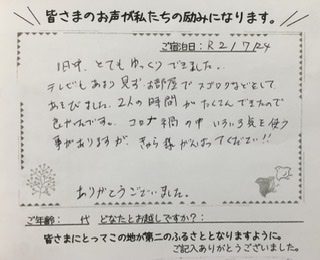 皆さまのお声が私たちの励みになります。
ご宿泊日: R2/7/24
1日中、とてもゆっくりできました。
テレビもあまり見ずお部屋でスゴロクなどをして
あそびました。2人の時間がたくさんできたので
良かったです。コロナ禍の中いろいろ気を使う
事がありますが、きゅら様がんばってください!!
ありがとうございました。
ご年齢: 代 どなたとお越しですか?:
皆さまにとってこの地が第二のふるさととなりますように。
ご記入ありがとうございました。